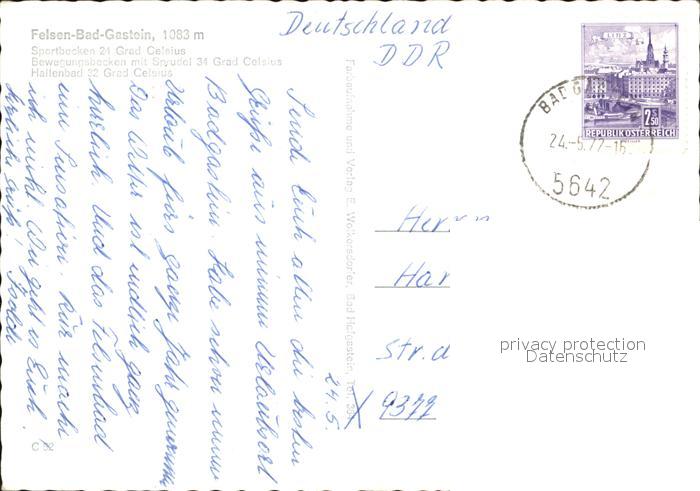 Felsen-Bad-Gastein, 1083 m
Sportbecken 21 Grad Celsius
Bewegungsbecken mit Sprudel 34 Grad Celsius
Hallenbad 32 Grad Celsius
Deutschland
DDR
LINZ
2.50
REPUBLIK ÖSTERREICH
BAD G
24.-5.77-16
5642
24.5.
Send Euch allen die besten
Grüße aus meinem Urlaubsort
Badgastein. Habe schon meinen
Urlaub fürs ganze Jahr genommen
Das Wetter ist endlich ganz
herrlich. Und das Felsenbad
eine Sensation. Kur mache
ich nicht. Wie geht es Euch?
Herzliche
Fotochrome und Verlag E. Wolkersdorfer, Bad Hofgastein, Tel.
Herrn
Har
Str. d
X 9377
privacy protection
Datenschutz
C 52